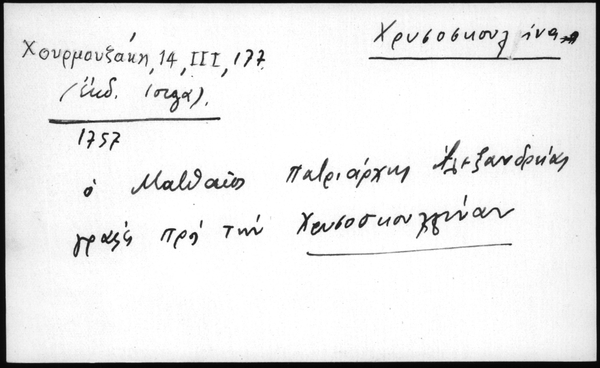 Χρυσοσκουλ ίνα
Χουρμουζάκη, 14, III, 177
(ἐκδ. Ιοργα).
1757
ὁ Ματθαῖος Πατριάρχης Ἀλεξανδρείας
γράφει πρὸς τὴν Χρυσοσκουλλαίναν